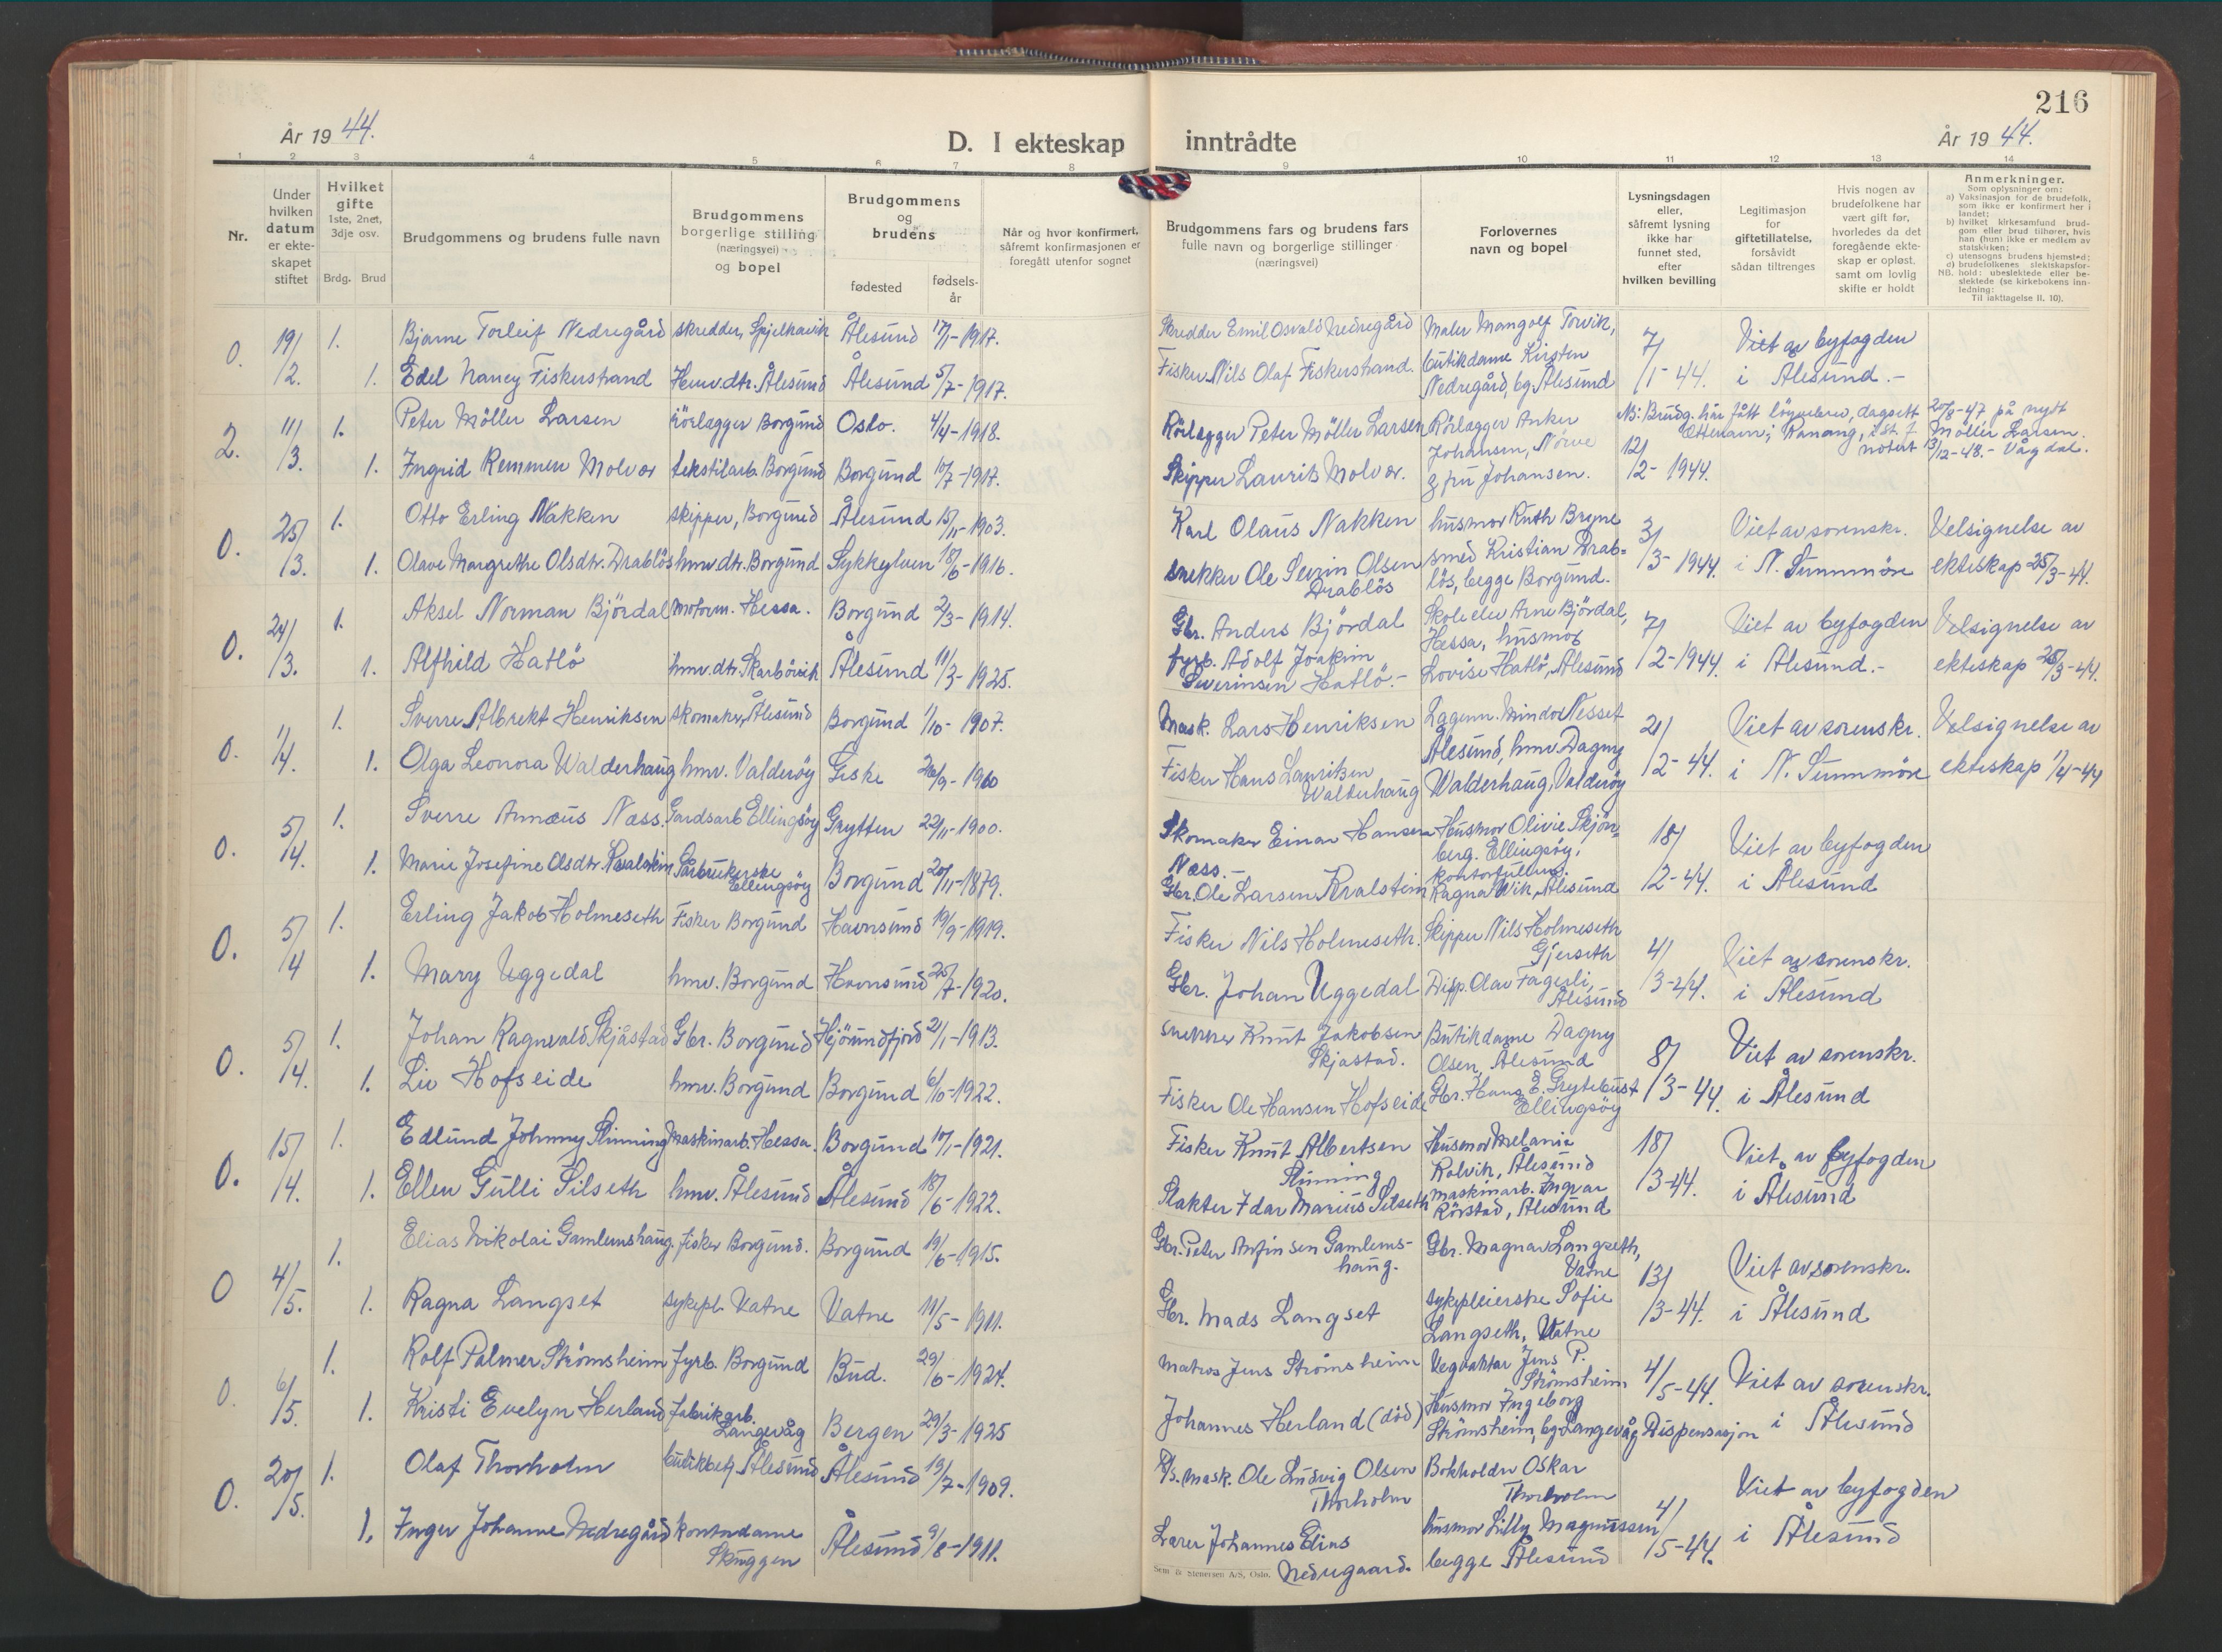 216
År 1944.
D. I ekteskap inntrådte
År 1944.
1 2 3 4 5 6 7 8 9 10 11 12 13 14
Nr.
Under hvilken datum er ekteskapet stiftet
Hvilket gifte 1ste, 2net, 3dje osv.
Brdg. Brud
Brudgommens og brudens fulle navn
Brudgommens borgerlige stilling (næringsvei) og bopel
Brudgommens og brudens
fødested
fødselsår
Når og hvor konfirmert, såfremt konfirmasjonen er foregått utenfor sognet
Brudgommens fars og brudens fars fulle navn og borgerlige stillinger (næringsvei)
Forlovernes navn og bopel
Lysningsdagen eller, såfremt lysning ikke har funnet sted, efter hvilken bevilling
Legitimasjon for giftetillatelse, forsåvidt sådan tiltrenges
Hvis nogen av brudefolkene har vært gift før, hvorledes da det foregående ekteskap er opløst, samt om lovlig skifte er holdt
Anmerkninger.
Som oplysninger om:
a) Vaksinasjon for de brudefolk, som ikke er konfirmert her i landet;
b) hvilket kirkesamfund brudgom eller brud tilhører, hvis han (hun) ikke er medlem av statskirken;
c) utensogns brudens hjemsted;
d) brudefolkenes slektskapsforhold: ubeslektede eller beslektede (se kirkebokens innledning:
NB.
Til iakttagelse II. 10).
0. 19/2. 1. Bjarne Torleif Nedregård skredder, Spjelkavik Ålesund 17/1-1917. Skredder Emil Osvald Nedregård Maler Mangolf Torvik,
1. Edel Nancy Fiskerstrand Husv.dtr. Ålesund Ålesund 5/7-1917. Fisker Nils Olaf Fiskerstrand. butikdame Kirsten Nedregård, bg. Ålesund 7/1-44. Viet av byfogden i Ålesund.-
2. 11/3. 1. Peter Möller Larsen rörlegger Borgund Oslo. 4/4-1918. Rörlegger Peter Möller Larsen Rörlegger Anker Johansen, Nörve
NB: Brudg. har fått løyvebrev, dagsett 20/8-47 på nytt ettenamn; Ranang, i st. f. Möller Larsen. notert 13/12-48.- Vågdal.
1. Ingrid Remmen Molvær tekstilarb. Borgund Borgund 10/7-1917. Skipper Laurits Molvær. g fru Johansen. 12/2-1944.
0. 25/3. 1. Otto Erling Nakken skipper, Borgund Ålesund 15/11-1903. Karl Olaus Nakken husmor Ruth Brune
1. Olave Margrethe Olsdtr. Drabløs hmv.dtr. Borgund Sykkylven 18/6-1916. snekker Ole Severin Olsen Drabløs smed Kristian Drabløs, begge Borgund. 3/3-1944. Viet av sorenskr. i N. Sunnmöre Velsignelse av ekteskap 25/3-44.
0. 24/3. 1. Aksel Norman Björdal motorm. Hessa. Borgund 2/3-1914. Gbr. Anders Björdal Skoleelev Arne Björdal,
1. Alfhild Hatlö hmv.dtr. Skarbövik Ålesund 11/3-1925. fyrb. Adolf Joakim Severinsen Hatlö.- Hessa, husmor Lovise Hatlö, Ålesund 7/2-1944. Viet av byfogden i Ålesund.- Velsignelse av ekteskap 25/3-44.
0. 1/4. 1. Sverre Albrekt Henriksen skomaker, Ålesund Borgund 1/10-1907. Mask. Lars Henriksen Lagerm. Mindor Nesset
1. Olga Leonora Walderhaug hmv. Valderöy Giske 26/9-1900 Fisker Hans Lauritsen Walderhaug Ålesund, hmv. Dagny Walderhaug, Valderöy 21/2-44. Viet av sorenskr. i N. Sunnmöre Velsignelse av ekteskap 1/4-44
0. 5/4. 1. Sverre Annæus Næss. Gardsarb. Ellingsöy Grytten 22/11-1900. Skomaker Einar Hansen Næss.- Husmor Olivie Skjönberg. Ellingsöy,
1. Marie Josefine Olsdtr. Kvalstein Gårbrukerske Ellingsöy Borgund 20/11-1879. Gbr. Ole Larsen Kvalstein kontorfullm. Ragna Wik, Ålesund 18/2-44. Viet av byfogden i Ålesund
0. 5/4 1. Erling Jakob Holmeseth Fisker Borgund Havnsund 19/9-1919. Fisker Nils Holmeseth. Skipper Nils Holmeseth Gjerseth
1. Mary Uggedal hmv. Borgund Havnsund 25/7-1920. Gbr. Johan Uggedal Disp. Olav Fagerli, Ålesund 4/3-44. Viet av sorenskr. i Ålesund
0. 5/4. 1. Johan Ragnvald Skjåstad Gbr. Borgund Hjörundfjord 21/1-1913. snekker Knut Jakobsen Skjåstad. Butikdame Dagny Olsen, Ålesund
1. Liv Hofseide hmv. Borgund Borgund 6/10-1922. Fisker Ole Hansen Hofseide Gbr. Hans E. Grytebust Ellingsöy 8/3-44. Viet av sorenskr. i Ålesund
0. 15/4. 1. Edlund Johnny Slinning Maskinarb. Hessa. Borgund 10/1-1921. Fisker Knut Albertsen Slinning Husmor Melanie Rolvik, Ålesund
1. Ellen Gulli Silseth hmv. Ålesund Ålesund 18/6-1922. Slakter Idar Marius Silseth maskinarb. Ingvar Rörstad, Ålesund 18/3-44. Viet av byfogden i Ålesund
0 4/5. 1. Elias Nikolai Gamlemshaug. fisker Borgund. Borgund 19/6-1915. Gbr. Peter Anfinsen Gamlemshaug. Gbr. Magnar Langseth, Vatne
1. Ragna Langset sykepl. Vatne Vatne 11/5-1911. Gbr. Mads Langset sykepleierske Sofie Langseth, Vatne 13/3-44. Viet av sorenskr. i Ålesund
0. 6/5. 1. Rolf Palmer Strömsheim fyrb. Borgund Bud. 29/6-1924. Matros Jens Strömsheim Vegvakter Jens P. Strömsheim
1. Kristi Evelyn Herland fabrikarb. Langevåg Bergen 29/3-1925 Johannes Herland (död) Husmor Ingeborg Strömsheim, bg. Langevåg 4/5-44. Dispensasjon Viet av sorenskr. i Ålesund
0. 20/5. 1. Olaf Thorholm butikbetj. Ålesund Ålesund 19/7-1909. D/s. mask. Ole Ludvig Olsen Thorholm Bokholder Oskar Thorholm
1. Inger Johanne Nedregård kontordame Skuggen Ålesund 9/8-1911. Lærer Johannes Elius Nedregaard. husmor Lilly Magnussen begge Ålesund 4/5-44. Viet av byfogden i Ålesund
Sem & Stenersen A/S, Oslo.